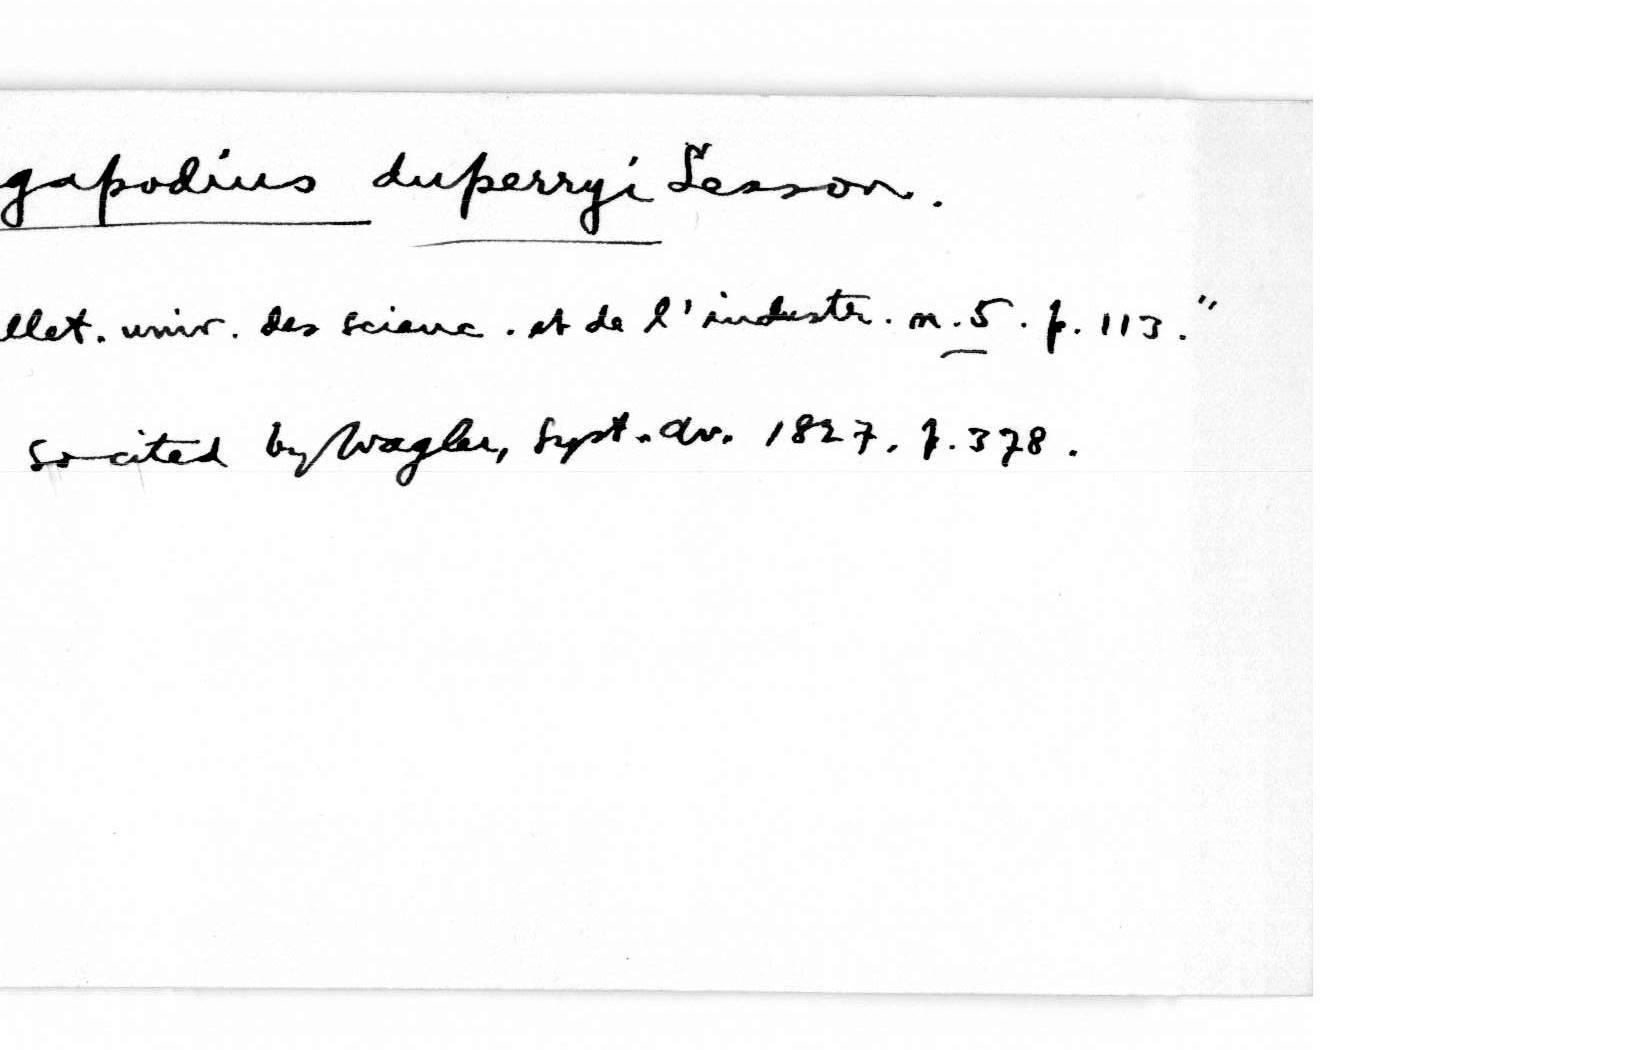 gapodius duperryi Lesson.
llet. univ. des scienc. et de l'industr. n.5. p. 113."
so cited by Wagler, Syst. Av. 1827. p. 378.